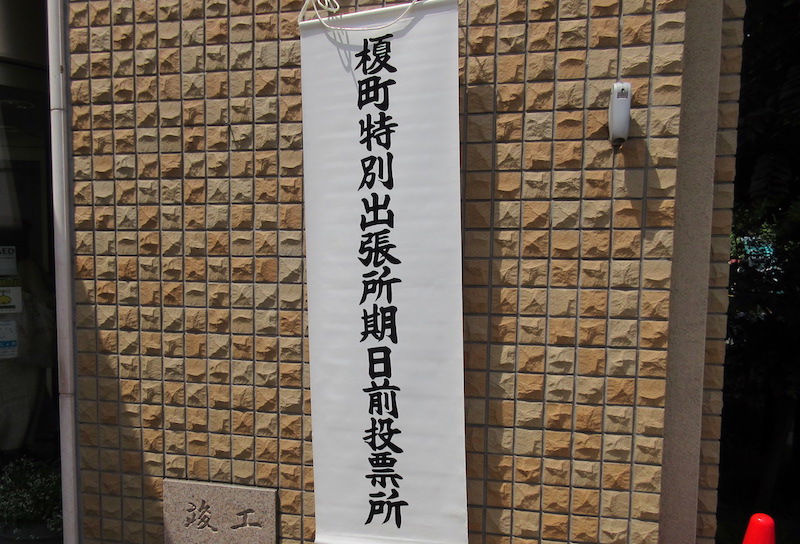 榎町特別出張所期日前投票所
竣工